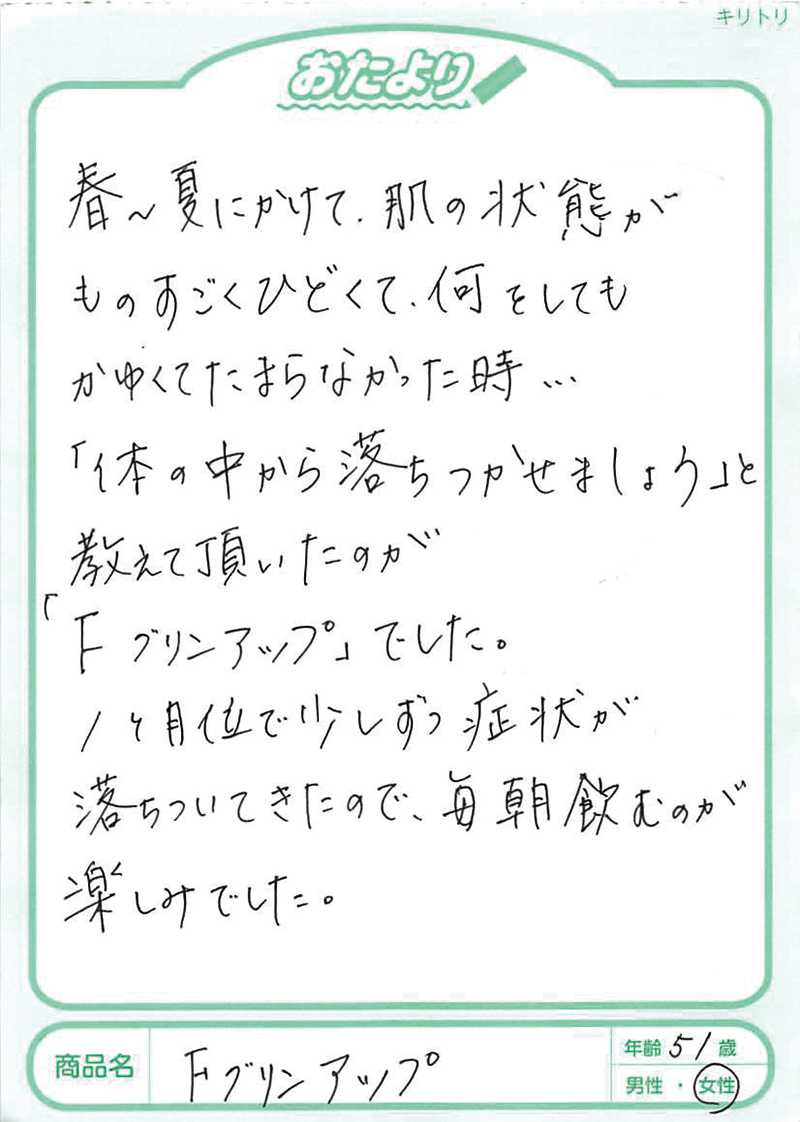 キリトリ
おたより
春～夏にかけて、肌の状態が
ものすごくひどくて、何をしても
かゆくてたまらなかった時…
「体の中から落ちつかせましょう」と
教えて頂いたのが
「Fグリンアップ」でした。
1ヶ月位で少しずつ症状が
落ちついてきたので、毎朝飲むのが
楽しみでした。
商品名 Fグリンアップ
年齢 51 歳
男性 ・ 女性